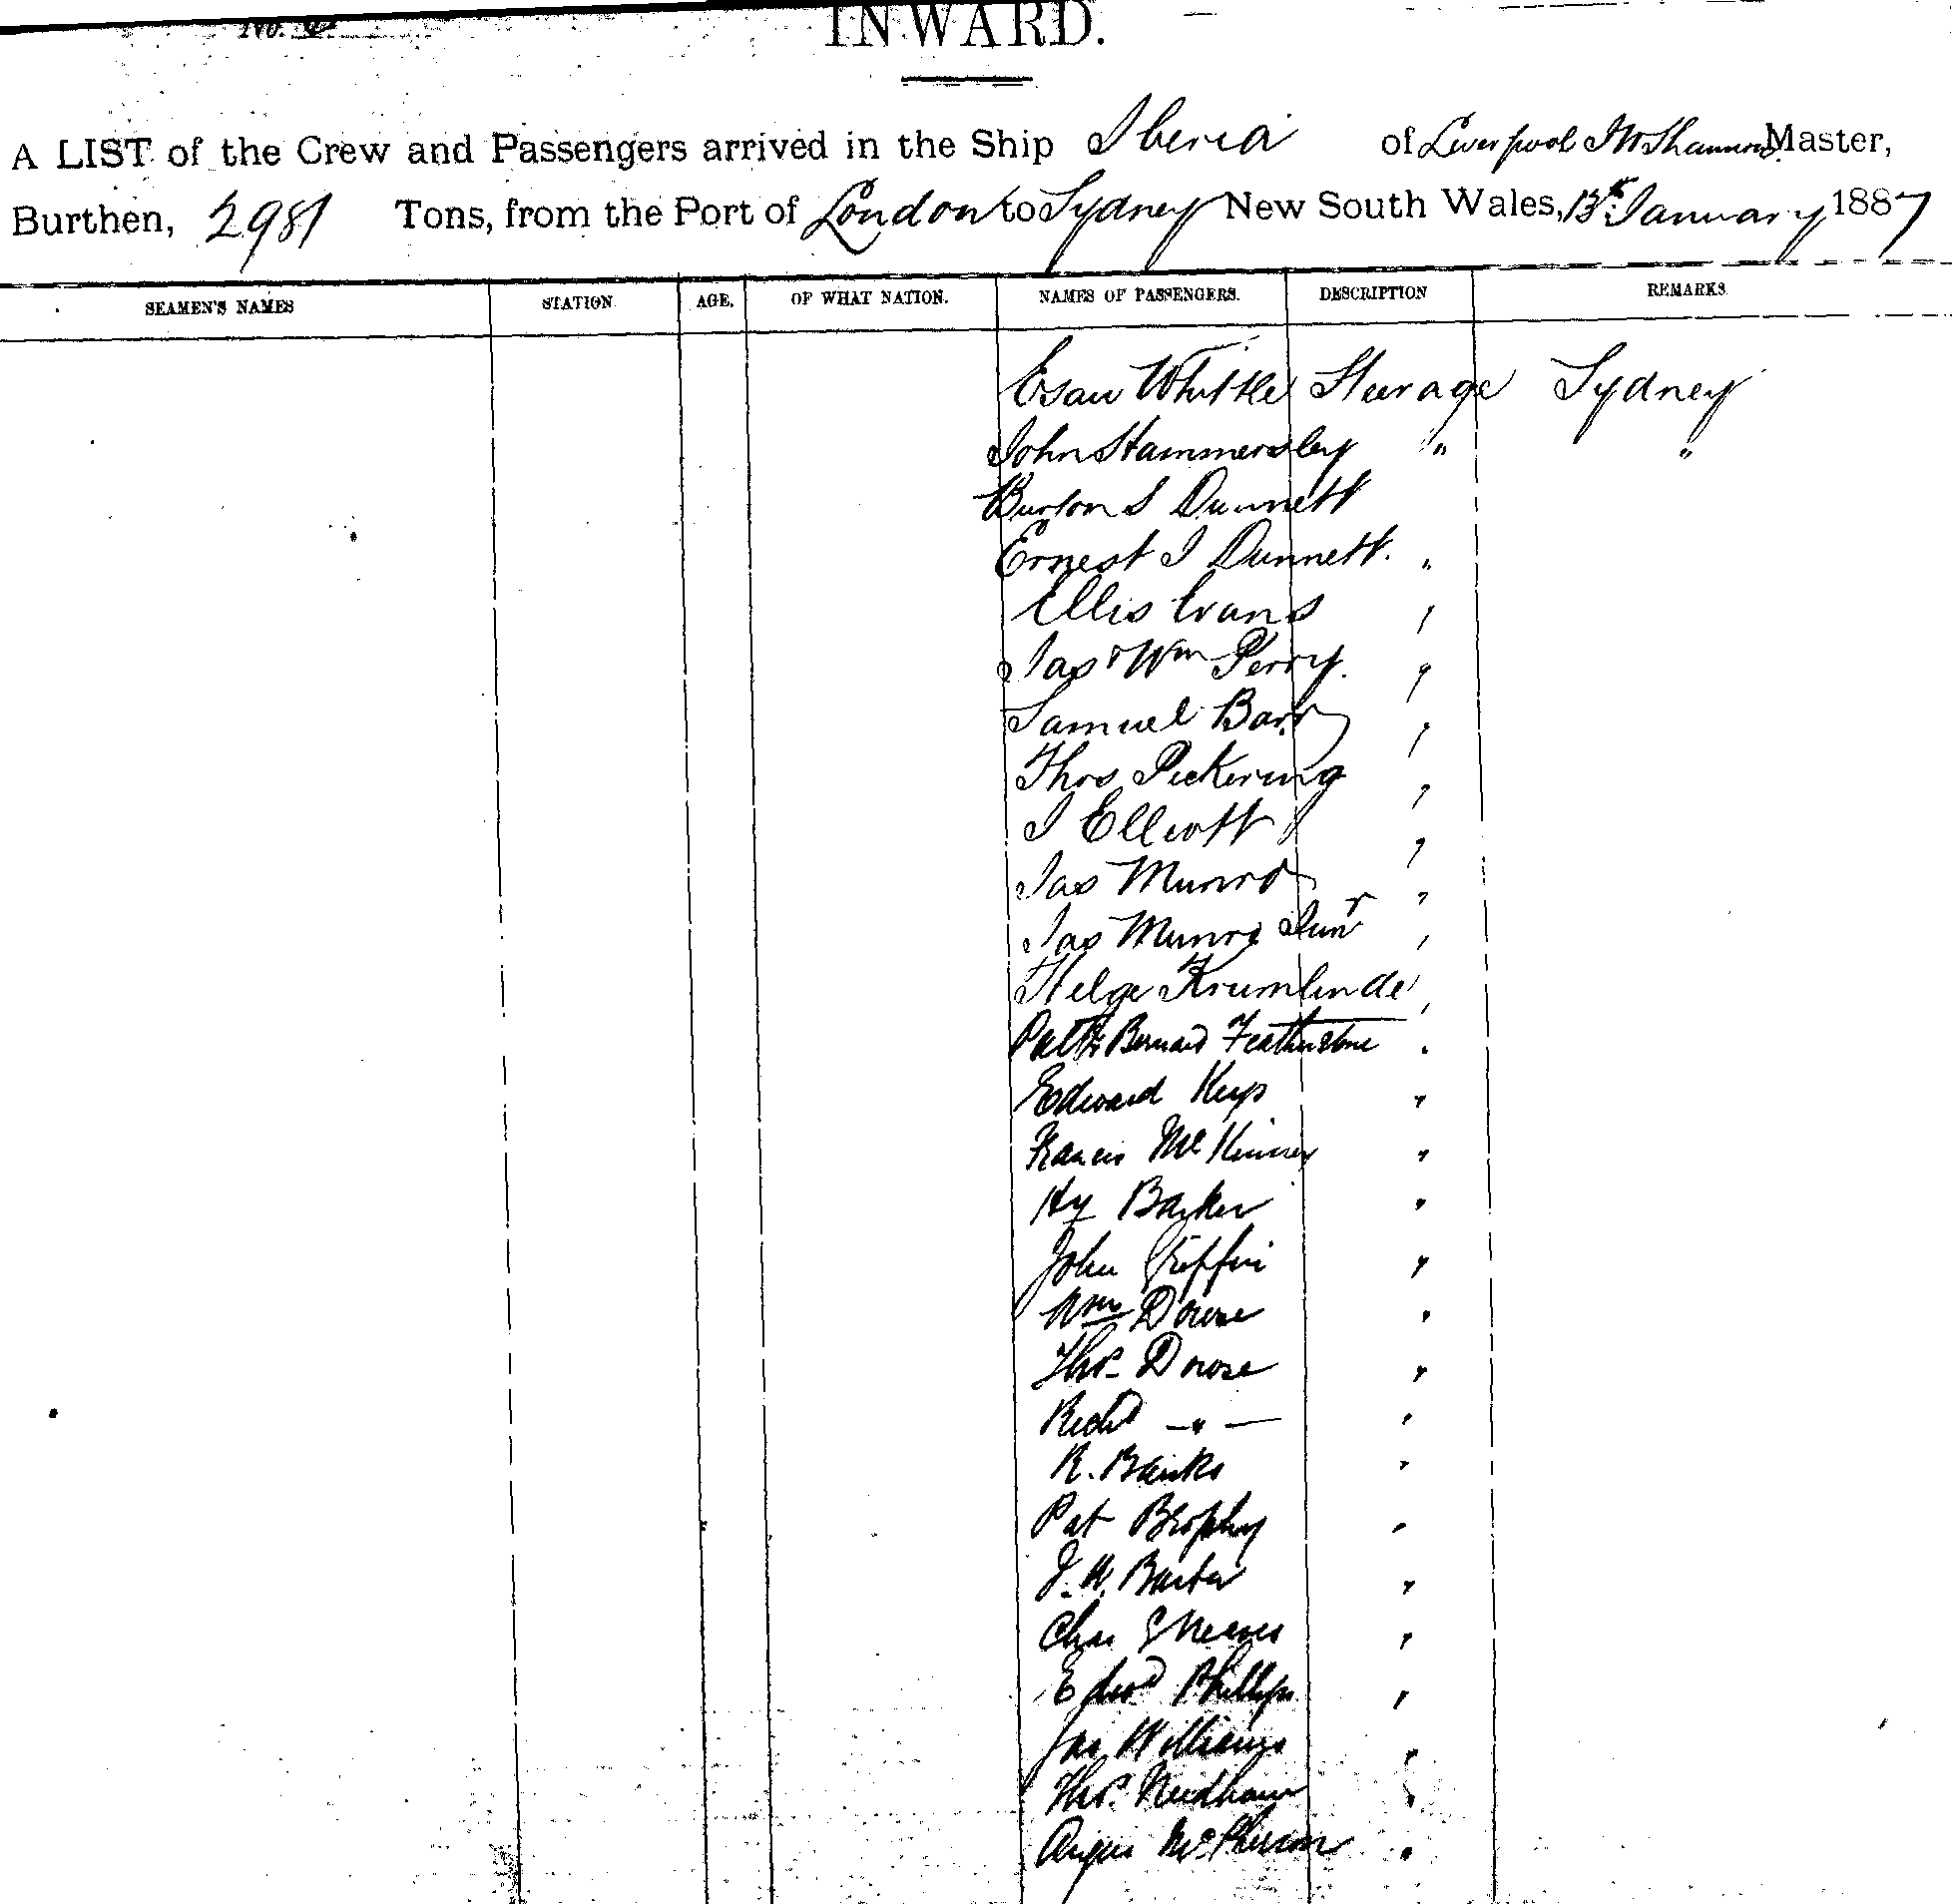 No.
INWARD.
A LIST of the Crew and Passengers arrived in the Ship Iberia of Liverpool J W Shannon Master,
Burthen, 2981 Tons, from the Port of London to Sydney New South Wales, 13th January 1887
SEAMEN'S NAMES STATION. AGE. OF WHAT NATION. NAMES OF PASSENGERS. DESCRIPTION REMARKS
Esau Whittle Steerage Sydney
John Hammersley " "
Burton S Dunnett
Ernest J Dunnett. "
Ellis Evans "
Jas Wm Perry. "
Samuel Barr "
Thos Pickering "
J Elliott "
Jas Munro "
Jas Munro Junr "
Helge Krumlinde "
Patk Bernard Featherstone "
Edward Keys "
Francis McKinney "
Hy Barker "
John Griffin "
Wm Dowse "
Thos Dowse "
Richd — " — "
R. Banks "
Pat Brophy "
J. W. Baxter "
Chas Greaves "
Edwd Phillips "
Jas Williams "
Thos. Needham "
Angus McPherson "